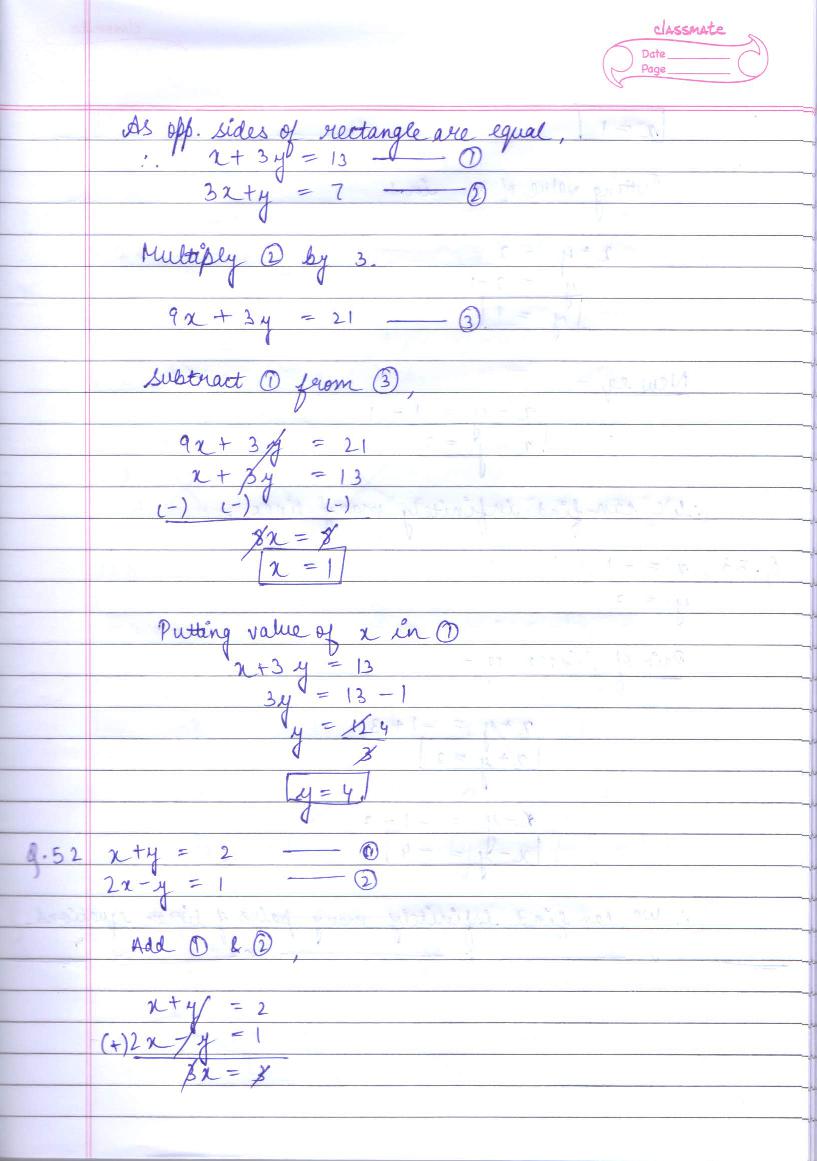 classmate
Date
Page
As opp. sides of rectangle are equal,
∴ x + 3y = 13 —— ①
3x+y = 7 —— ②
Multiply ② by 3.
9x + 3y = 21 —— ③
Subtract ① from ③,
9x + 3y = 21
x + 3y = 13
(-) (-) (-)
8x = 8
x = 1
Putting value of x in ①
x+3y = 13
3y = 13 - 1
y = 12 4
3
y = 4
Q.52 x+y = 2 —— ①
2x-y = 1 —— ②
Add ① & ②,
x+y = 2
(+) 2x - y = 1
3x = 3